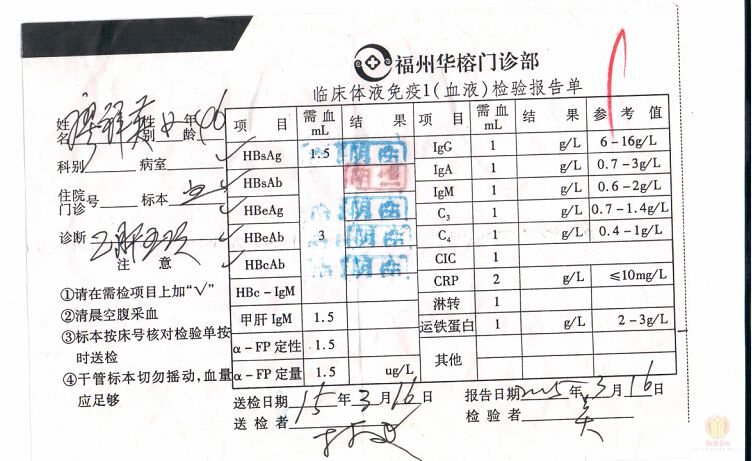 福州华榕门诊部
临床体液免疫1(血液)检验报告单
姓名 性别 女 年龄
科别 病室
住院门诊号 标本 血
诊断
注意
①请在需检项目上加“√”
②清晨空腹采血
③标本按床号核对检验单按时送检
④干管标本切勿摇动,血量应足够
项目 需血mL 结果 项目 需血mL 结果 参考值
√ HBsAg 1.5 阴性 IgG 1 g/L 6-16g/L
√ HBsAb 阳性 IgA 1 g/L 0.7-3g/L
√ HBeAg 阴性 IgM 1 g/L 0.6-2g/L
√ HBeAb 3 阴性 C3 1 g/L 0.7-1.4g/L
√ HBcAb 阴性 C4 1 g/L 0.4-1g/L
HBc-IgM CIC 1
甲肝IgM 1.5 CRP 2 g/L ≤10mg/L
α-FP定性 1.5 淋转 1
α-FP定量 1.5 ug/L 运铁蛋白 1 g/L 2-3g/L
其他
送检日期 15年3月16日 报告日期 2015年3月16日
送检者 检验者